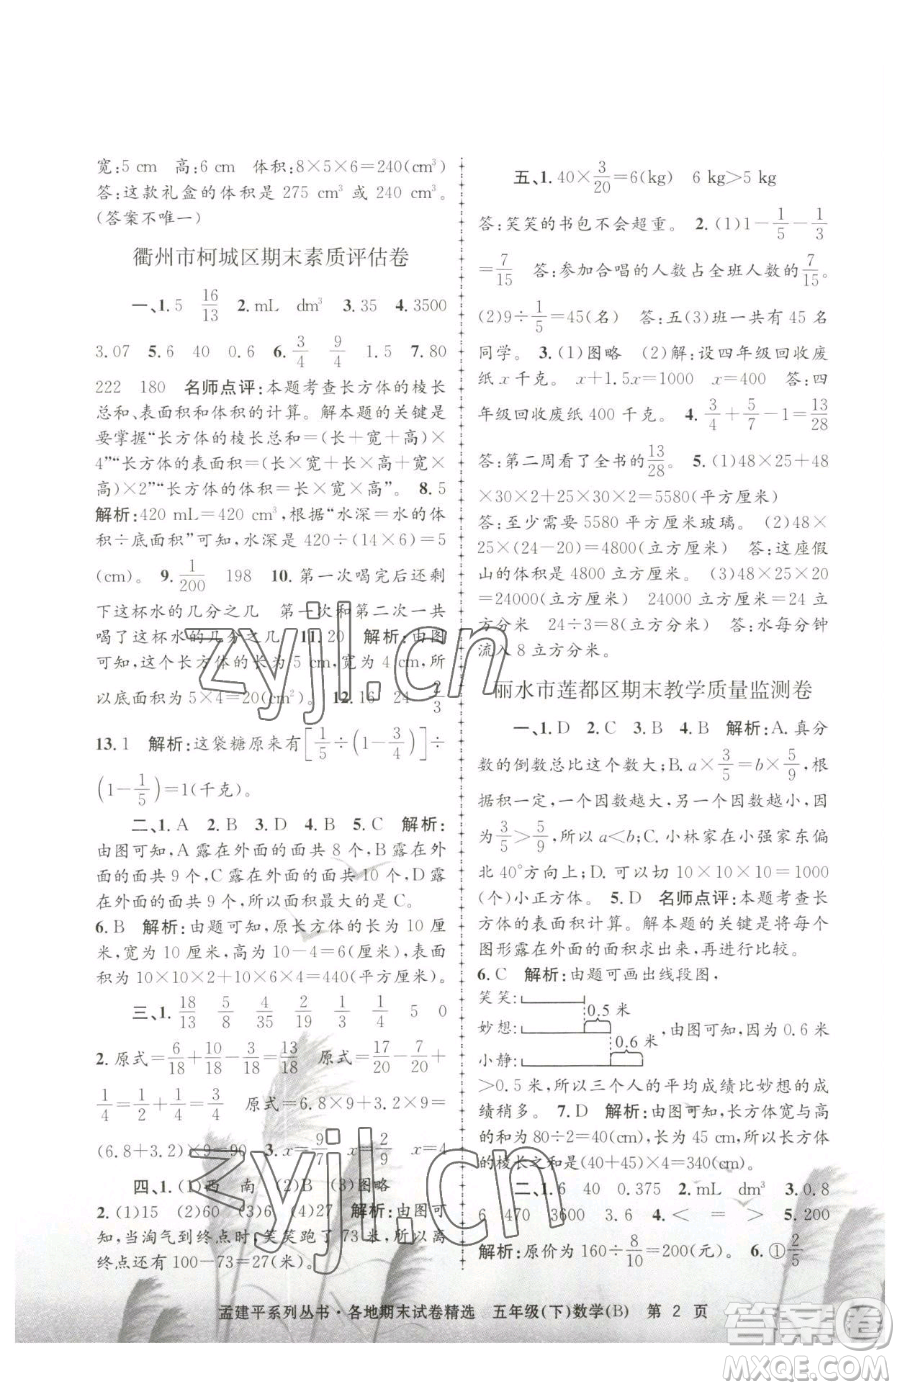 宽:5 cm 高:6 cm 体积:8×5×6=240(cm³)
答:这款礼盒的体积是 275 cm³ 或 240 cm³。
(答案不唯一)
衢州市柯城区期末素质评估卷
一、1. 5 16/13 2. mL dm³ 3. 35 4. 3500
3.07 5. 6 40 0.6 6. 3/4 9/4 1.5 7. 80
222 180 名师点评:本题考查长方体的棱长
总和、表面积和体积的计算。解本题的关键是
要掌握“长方体的棱长总和=(长+宽+高)×
4”“长方体的表面积=(长×宽+长×高+宽×
高)×2”“长方体的体积=长×宽×高”。 8. 5
解析:420 mL=420 cm³,根据“水深=水的体
积÷底面积”可知,水深是 420÷(14×6)=5
(cm)。 9. 1/200 198 10. 第一次喝完后还剩
下这杯水的几分之几 第一次和第二次一共
喝了这杯水的几分之几 11. 20 解析:由图
可知,这个长方体的长为 5 cm,宽为 4 cm,所
以底面积为 5×4=20(cm²)。 12. 16 24 2/3
13. 1 解析:这袋糖原来有[1/5÷(1-3/4)]÷
(1-1/5)=1(千克)。
二、1. A 2. B 3. D 4. B 5. C 解析:
由图可知,A 露在外面的面共 8 个,B 露在外
面的面共 9 个,C 露在外面的面共 9 个,D 露
在外面的面共 9 个,所以面积最大的是 C。
6. B 解析:由图可知,原长方体的长为 10 厘
米,宽为 10 厘米,高为 10-4=6(厘米),表面
积为 10×10×2+10×6×4=440(平方厘米)。
三、1. 18/13 5/8 4/35 2/19 1/3 1/4 5 0
2. 原式=6/18+10/18=16/18=8/9 原式=17/20-7/20-
1/4=1/2-1/4=1/4 原式=6.8×9+3.2×9=
(6.8+3.2)×9=90 3. x=9/7 x=2/9 x=4
四、1. (1)西 南 (2)B (3)图略
2. (1)15 (2)60 (3)6 (4)27 解析:由图可
知,当淘气到终点时,笑笑跑了 73 米,此时距
终点还有 100-73=27(米)。
五、1. 40×3/20=6(kg) 6 kg>5 kg
答:笑笑的书包不会超重。 2. (1)1-1/5-1/3=
7/15 答:参加合唱的人数占全班人数的7/15。
(2)9÷1/5=45(名) 答:五(3)班一共有 45 名
同学。 3. (1)图略 (2)解:设四年级回收废
纸 x 千克。 x+1.5x=1000 x=400 答:四
年级回收废纸 400 千克。 4. 3/4+5/7-1=13/28
答:第二周看了全书的13/28。 5. (1)48×25+48
×30×2+25×30×2=5580(平方厘米)
答:至少需要 5580 平方厘米玻璃。 (2)48×
25×(24-20)=4800(立方厘米) 答:这座假
山的体积是 4800 立方厘米。 (3)48×25×20
=24000(立方厘米) 24000 立方厘米=24 立
方分米 24÷3=8(立方分米) 答:水每分钟
流入 8 立方分米。
丽水市莲都区期末教学质量监测卷
一、1. D 2. C 3. B 4. B 解析:A. 真分
数的倒数总比这个数大;B. a×3/5=b×5/9,如果
积一定,一个因数越大,另一个因数越小,因
为3/5>5/9,所以 a<b;C. 小林家在小强家东偏
北 40°方向上;D. 可以切 10×10×10=1000
(个)小正方体。 5. D 名师点评:本题考查长
方体的表面积计算。解本题的关键是将每个
图形露在外面的面积求出来,再进行比较。
6. C 解析:由题可画出线段图,
笑笑: 0.5 米
妙想: ,由图可知,因为 0.6 米
小静: 0.6 米
>0.5 米,所以三个人的平均成绩比妙想的成
绩稍多。 7. D 解析:由题可知,长方体的长
和宽的和为 80÷2=40(cm),所以这个长方体
的棱长之和是(40+45)×4=340(cm)。
二、1. 6 40 0.375 2. mL dm³ 3. 0.8
6 470 3600 3.6 4. < = > < 5. 200
解析:原价为 160÷8/10=200(元)。 6. ①2/5
孟建平系列丛书·各地期末试卷精选 五年级(下)数学(B) 第 2 页
zyjl.cn
zyjl.cn
答案圈
MXQE.COM